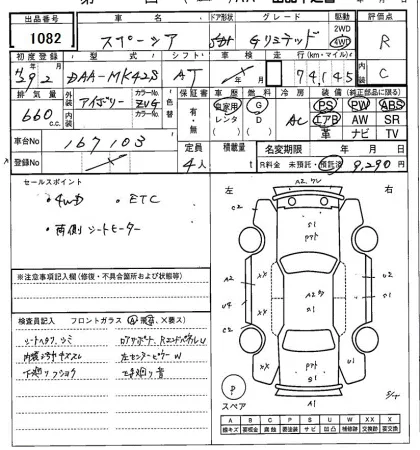 出品番号 車名 ドア形状 グレード 駆動 評価点
1082 スペーシア 5ドア Gリミテッド 2WD 4WD R
初度登録 型式 シフト 車検 走行(km・マイル) 内装
29年2月 DAA-MK42S AT 年 月 74,145 C
排気量 外装 カラーNo. 色替 保証書 車歴 燃料 冷房 装備(純正部品に限る)
660 c.c. アイボリー ZVG 有・無 自家用 レンタ G D AC PS PW ABS
エアB AW SR
革 ナビ TV
内装 カラーNo.
車台No 167103 定員 積載量 名変期限 年 月 日
登録No 4人 t R料金 未預託・預託済 9,290円
セールスポイント
・4WD ・ETC
・両側シートヒーター
※注意事項記入欄(修復・不具合箇所および状態等)
検査員記入 フロントガラス (A、飛石、X要ス)
シートヘタリ、シミ
下廻りフショク
左センターピラーW
左 右
A2
C2
S1
A2
U4
C2
XX
XX
XX
XX
S1
U1
A1
P
スペア
A B C P S U W X XX
線キズ 要板金 腐蝕 要塗装 サビ 凹凸 補修跡 要交換 交換跡